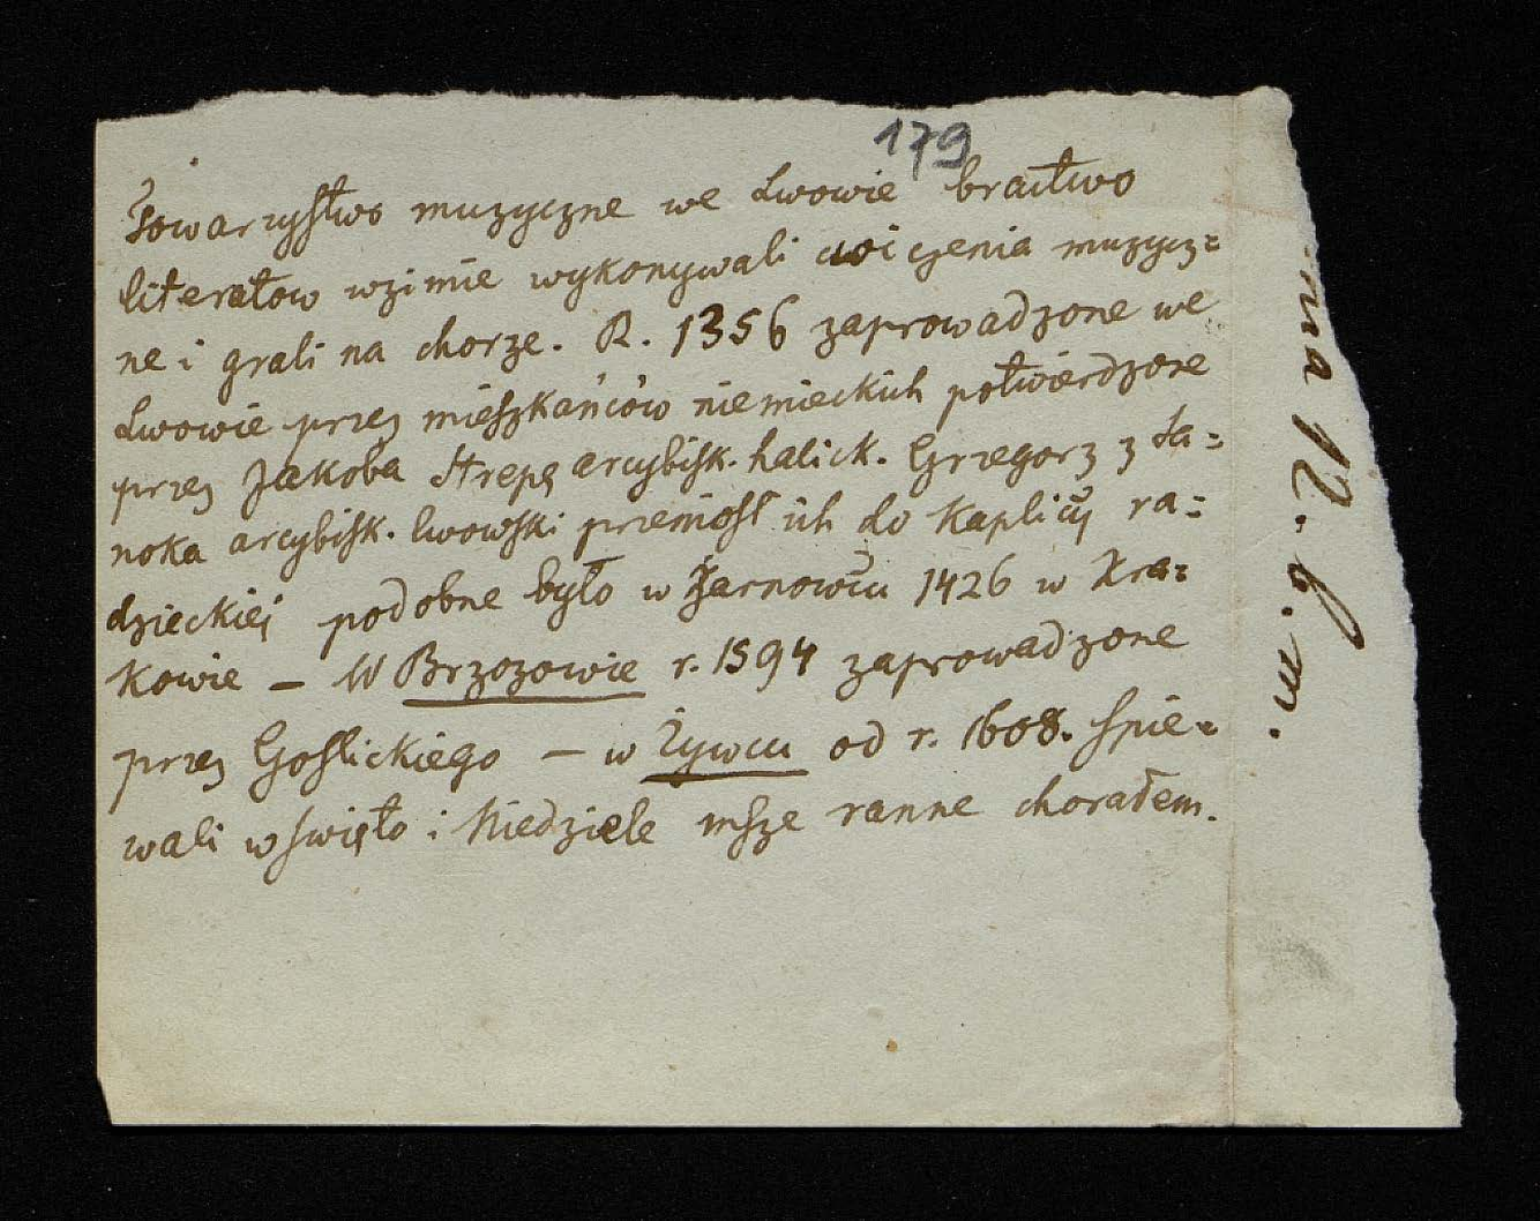 179
Towarzystwo muzyczne we Lwowie bractwo
literatow wzimie wykonywali cwiczenia muzycz=
ne i grali na chorze. R. 1356 zaprowadzone we
Lwowie przez mieszkańców niemieckich potwierdzone
przez Jakoba Strepę arcybisk. halick. Grzegorz z Sa=
noka arcybisk. lwowski przeniosł ich do Kaplicy ra=
dzieckiej podobne było w Żarnowcu 1426 w Kra=
kowie – W Brzozowie r. 1594 zaprowadzone
przez Goslickiego – w Żywcu od r. 1608. spie=
wali w swięto i Niedziele msze ranne chorałem.
na 12. b. m.